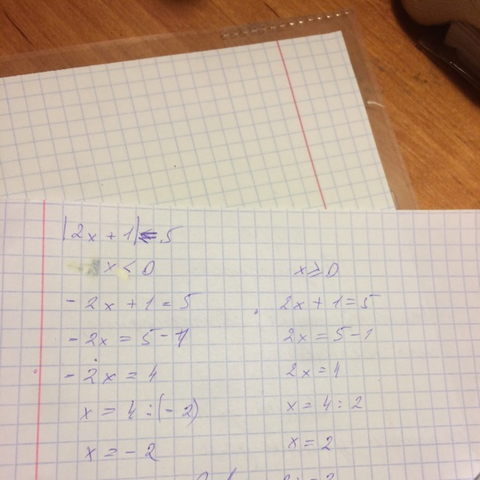 |2x + 1| = 5
x < 0
- 2x + 1 = 5
- 2x = 5 - 1
- 2x = 4
x = 4 : (- 2)
x = - 2
x ≥ 0
2x + 1 = 5
2x = 5 - 1
2x = 4
x = 4 : 2
x = 2